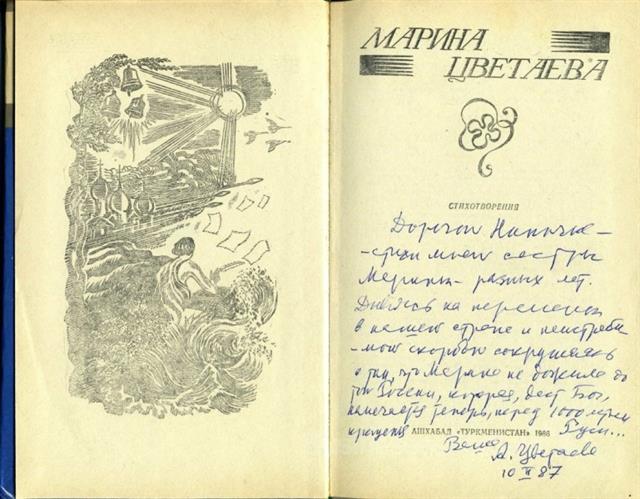 МАРИНА
ЦВЕТАЕВА
СТИХОТВОРЕНИЯ
Дорогой Ниночке —
- стихи моей сестры
Марины - разных лет.
Дивясь на перемены
в нашей стране и неистреби
- мой скорбью сокрушаясь
о том, что Марина не дожила до
той России, которая, даст Бог,
намечается теперь, перед 1000-летием
крещения Руси...
АШХАБАД «ТУРКМЕНИСТАН» 1986
Ваша
А. Цветаева
10 II 87